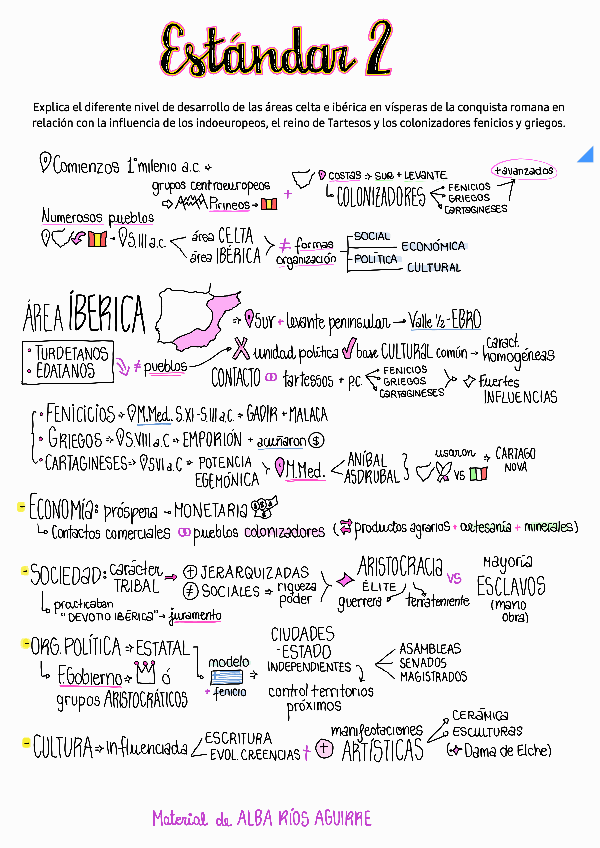 Estándar 2
Explica el diferente nivel de desarrollo de las áreas celta e ibérica en vísperas de la conquista romana en
relación con la influencia de los indoeuropeos, el reino de Tartesos y los colonizadores fenicios y griegos.
Comienzos 1º milenio a.c →
grupos centroeuropeos
⇒ Pirineos →
+ COSTAS → SUR + LEVANTE
COLONIZADORES
FENICIOS
GRIEGOS
CARTAGINESES
+avanzados
Numerosos pueblos
→ S.III a.c.
área CELTA
área IBÉRICA
≠ formas
organización
SOCIAL
ECONÓMICA
POLÍTICA
CULTURAL
ÁREA ÍBERICA
⇒ Sur + levante peninsular → Valle ½-EBRO
• TURDETANOS
• EDATANOS
≠ pueblos
X unidad política ✓ base CULTURAL común → Caract.
homogéneas
CONTACTO tartessos + p.c.
FENICIOS
GRIEGOS
CARTAGINESES
Fuertes
INFLUENCIAS
• FENICICIOS → M.Med. S.XI-S.III a.c. → GADIR + MALACA
• GRIEGOS → S.VIII a.c → EMPORIÓN + acuñaron $
• CARTAGINESES → S.VI a.C → POTENCIA
EGEMÓNICA
M.Med.
ANÍBAL
ASDRUBAL
usaron
VS
→ CARTAGO
NOVA
- ECONOMÍA: próspera → MONETARIA
Contactos comerciales pueblos colonizadores (⇄ productos agrarios + artesanía + minerales)
- SOCIEDAD: carácter
TRIBAL
→ + JERARQUIZADAS
≠ SOCIALES ⇒ riqueza
poder
practicaban
"DEVOTIO IBÉRICA" → juramento
ARISTOCRACIA
ÉLITE
guerrera
terrateniente
VS
Mayoría
ESCLAVOS
(mano
obra)
- ORG. POLÍTICA → ESTATAL
F.Gobierno → ó
grupos ARISTOCRÁTICOS
modelo
+ fenicio
CIUDADES
-ESTADO
INDEPENDIENTES
control territorios
próximos
ASAMBLEAS
SENADOS
MAGISTRADOS
- CULTURA → influenciada
ESCRITURA
EVOL. CREENCIAS
+ manifestaciones
ARTÍSTICAS
CERÁMICA
ESCULTURAS
(Dama de Elche)
Material de ALBA RÍOS AGUIRRE